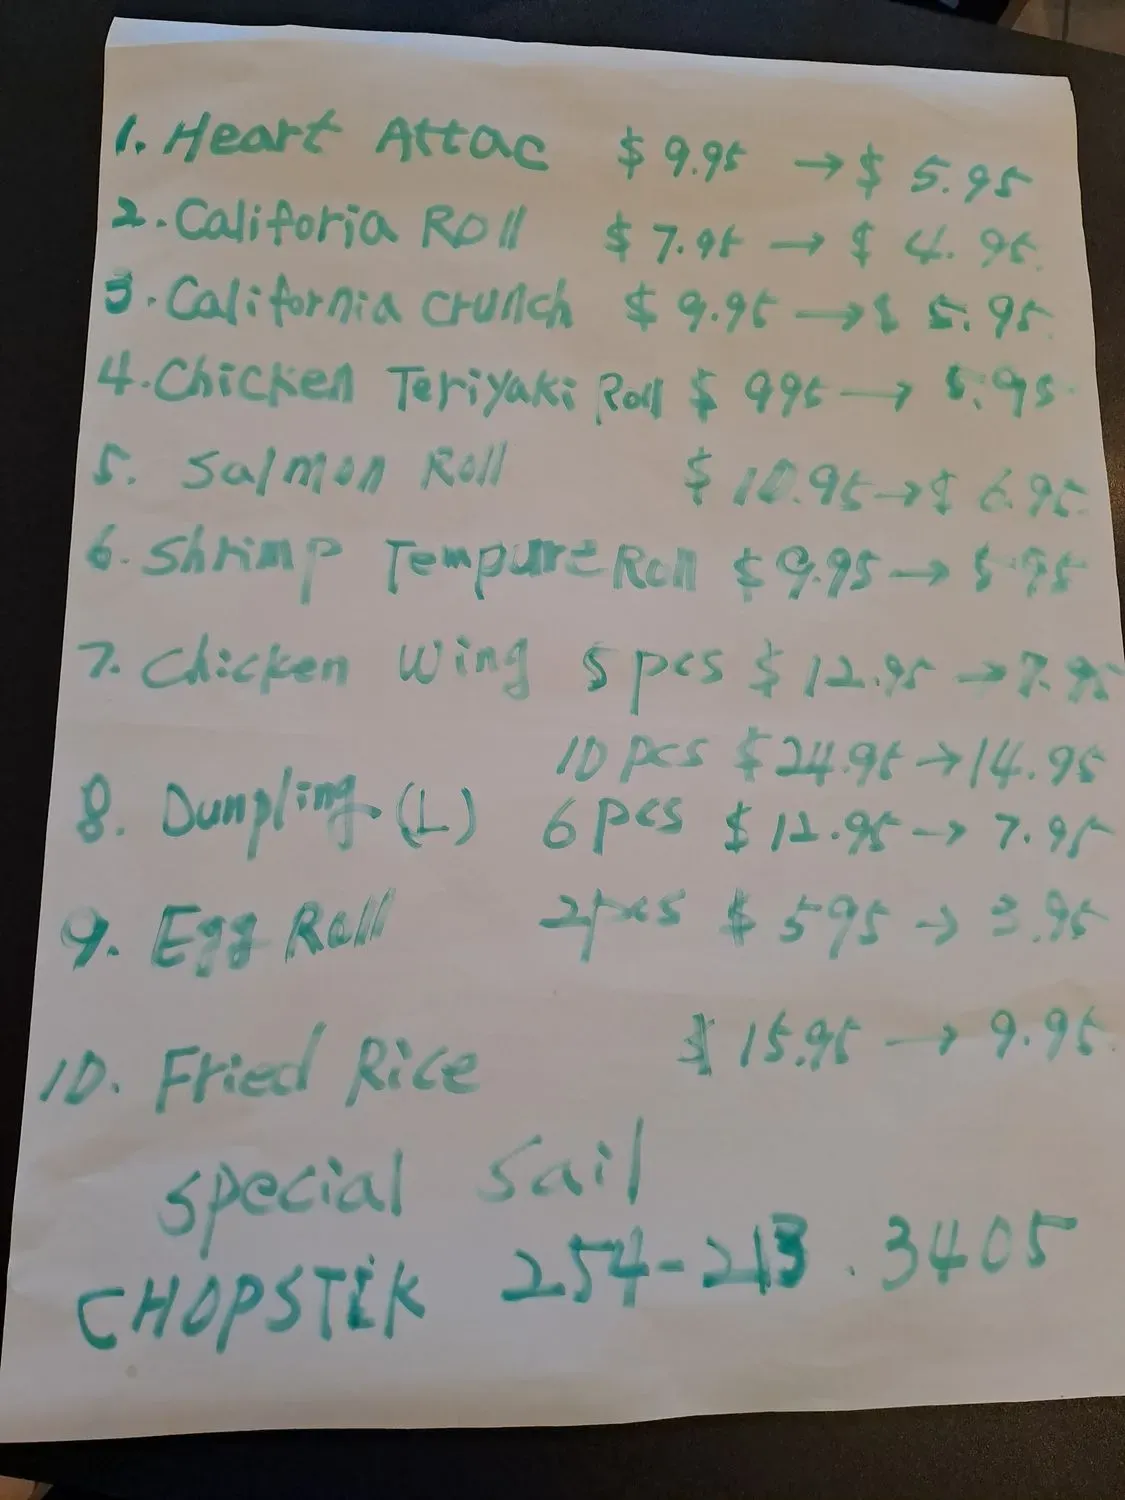 1. Heart Attac $ 9.95 → $ 5.95
2. Califoria Roll $ 7.95 → $ 4.95.
3. California Crunch $ 9.95 → $ 5.95.
4. Chicken Teriyaki Roll $ 995 → 5.95.
5. Salmon Roll $ 10.95 → $ 6.95.
6. Shrimp Tempure Roll $ 9.95 → 5.95
7. Chicken Wing 5 pcs $ 12.95 → 7.95
10 pcs $ 24.95 → 14.95
8. Dumpling. (L) 6 pcs $ 12.95 → 7.95
9. Egg Roll 2pcs $ 595 → 3.95
10. Fried Rice $ 15.95 → 9.95.
Special Sail
CHOPSTIK 254-213.3405